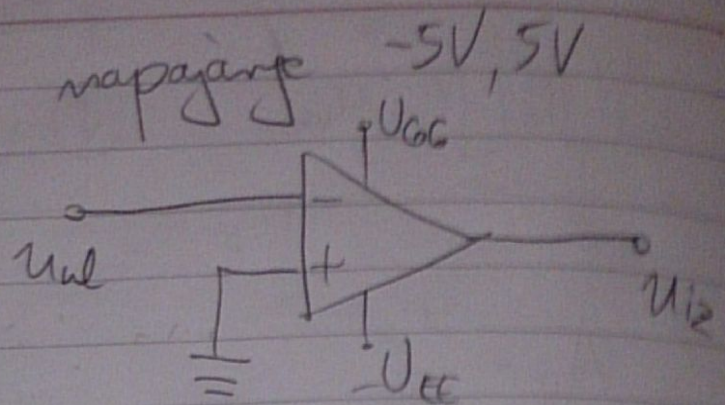 napajanje -5V, 5V
UCC
-
uul
+
uiz
-UEE